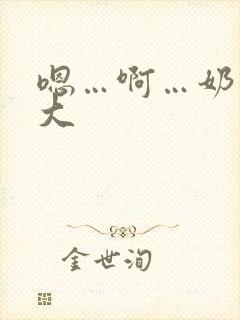 嗯…啊…奶
大
金世洵